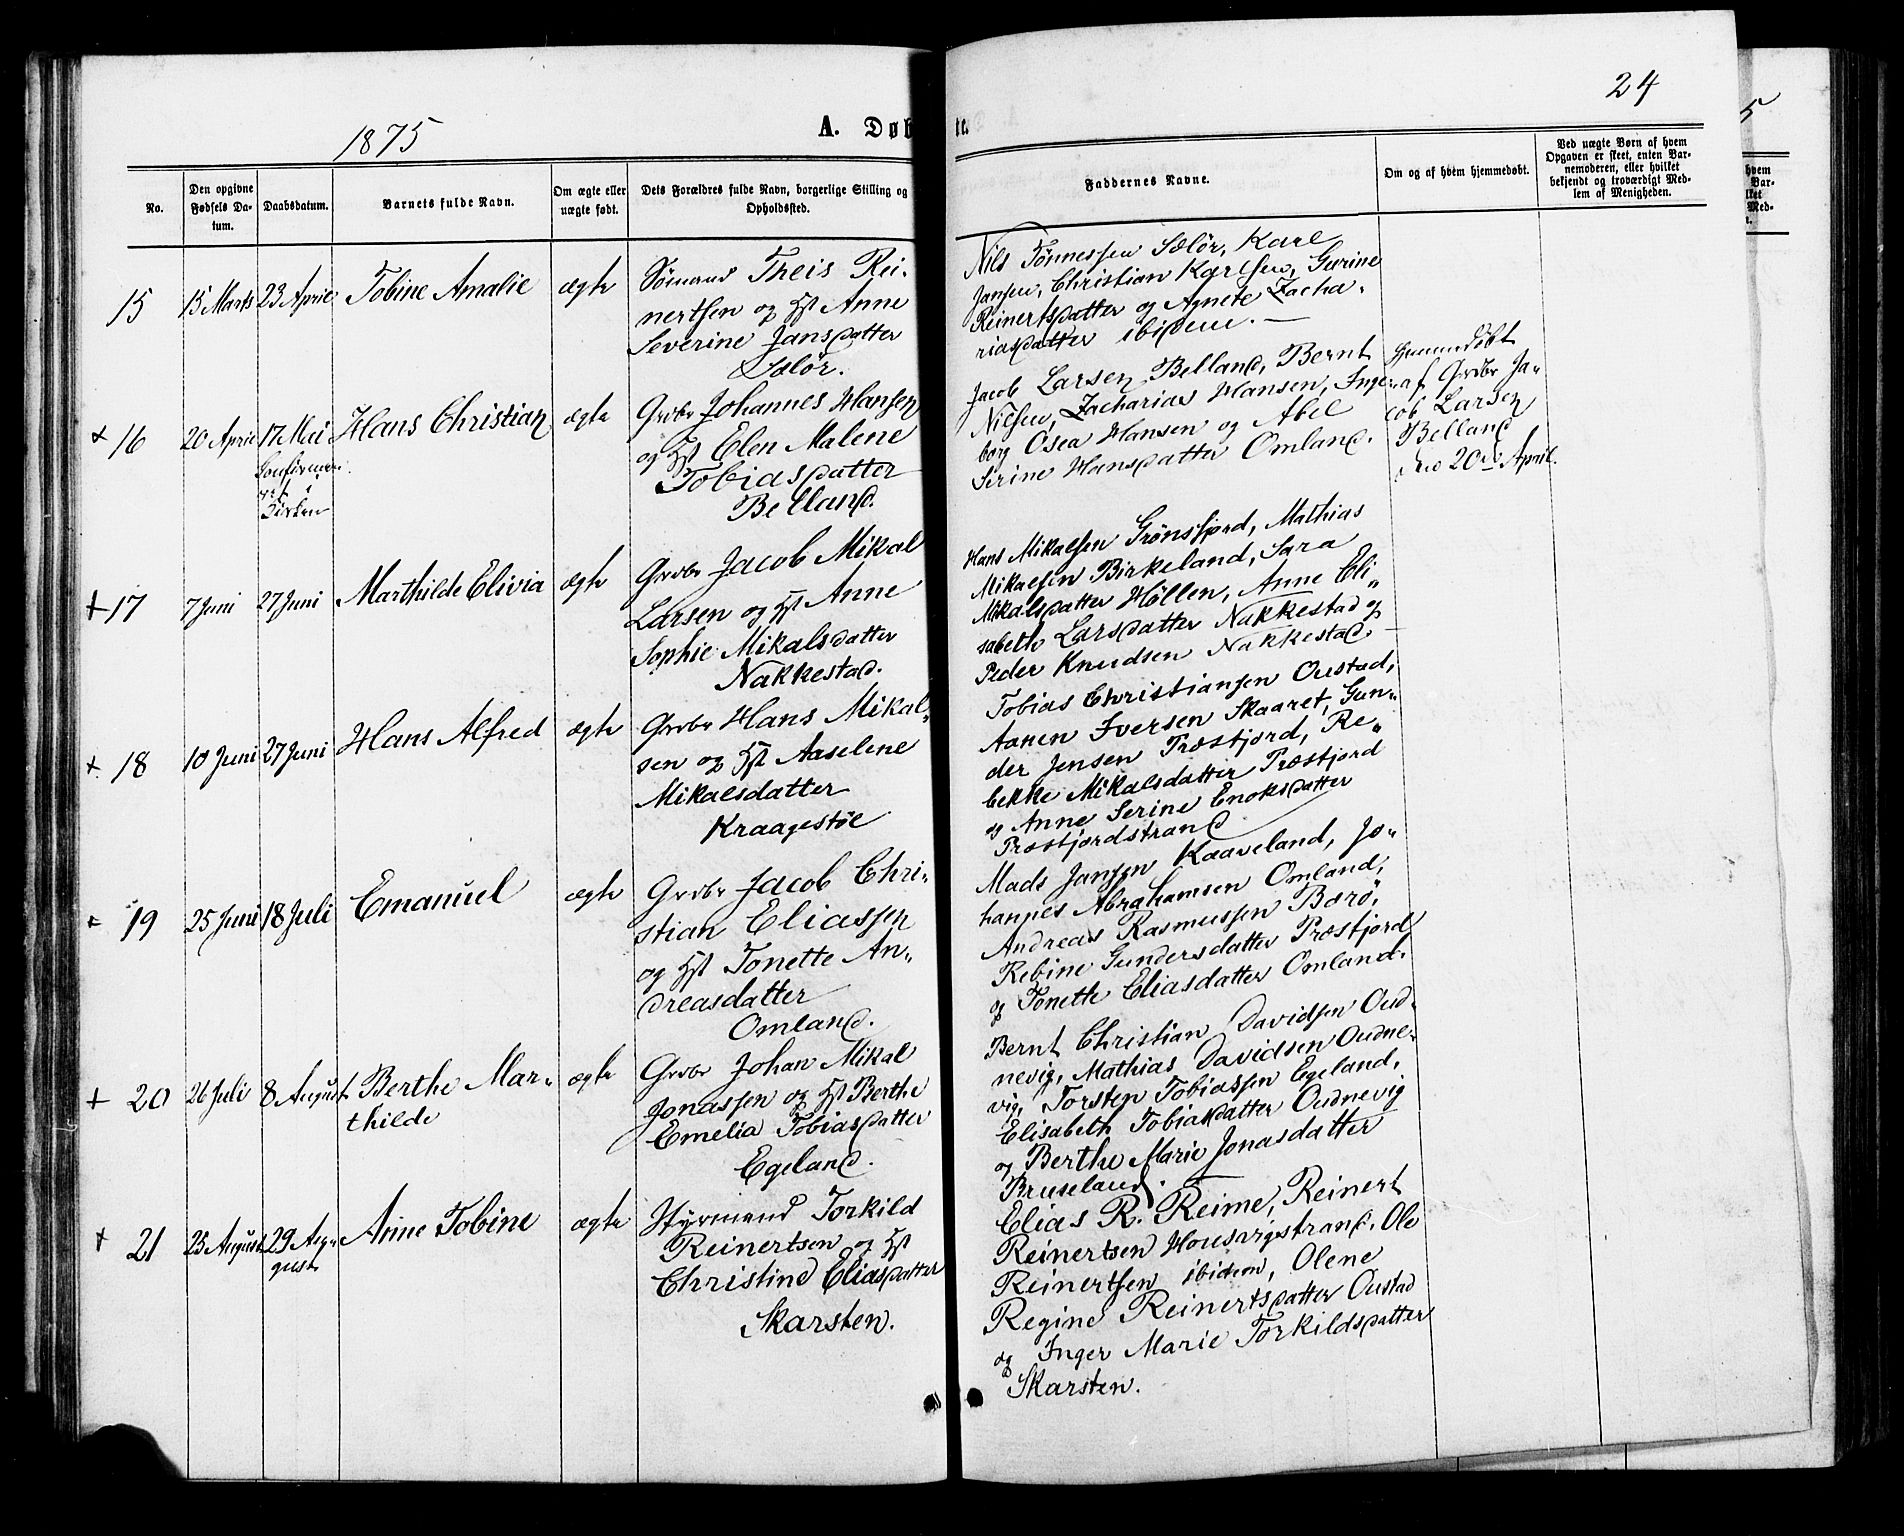 1875
A. Døb
No.
Den opgivne Fødsels Da-
tum.
Daabsdatum.
Barnets fulde Navn.
Om ægte eller
uægte født.
Dets Forældres fulde Navn, borgerlige Stilling og
Opholdssted.
15
15 Marts
23 April
Tobine Amalie
ægte
Sømand Theis Rei-
nertsen og Hst Anne
Severine Jansdatter
Sælør.
16
20 April
17 Mai
i
Kirken
Hans Christian
ægte
Grdbr Johannes Hansen
og Hst Elen Malene
Tobiasdatter
Belland.
17
7 Juni
27 Juni
Marthilde Elivia
ægte
Grdbr Jacob Mikal
Larsen og Hst Anne
Sophie Mikalsdatter
Nakkestad.
18
10 Juni
27 Juni
Hans Alfred
ægte
Grdbr Hans Mikal-
sen og Hst Aaselene
Mikalsdatter
Kraagestøe
19
25 Juni
18 Juli
Emanuel
ægte
Grdbr Jacob Chri-
stian Eliassen
og Hst Tonette An-
dreasdatter
Omland.
20
26 Juli
8 August
Berthe Mar-
thilde
ægte
Grdbr Johan Mikal
Jonassen og Hst Berthe
Emelia Tobiasdatter
Egeland.
21
25 August
29 Au-
gust
Anne Tobine
ægte
Styrmand Torkild
Reinertsen og Hst
Christine Eliasdatter
Skarsten.
24
te.
Faddernes Navne.
Om og af hvem hjemmedøbt.
Ved uægte Børn af hvem
Opgaven er skeet, enten Bar-
nemoderen, eller hvilket
bekjendt og troværdigt Med-
lem af Menigheden.
Nils Tønnessen Sælör, Karl
Jansen, Christian Karlsen, Gurine
Reinertsdatter og Agnete Zacha-
riasdatter ibidem.
Jacob Larsen Belland, Bernt
Nielsen, Zacharias Hansen, Inge-
borg Osea Hansen og Abel
Serine Hansdatter Omland.
Hjemmedöbt
af Grdbr Ja-
cob Larsen
Belland
den 20de April.
Hans Mikalsen Grönsfjord, Mathias
Mikalsen Birkeland, Sara
Mikalsdatter Höllen, Anne Eli-
sabeth Larsdatter Nakkestad og
Peder Knudsen Nakkestad.
Tobias Christiansen Oustad,
Aanen Iversen Skaaret, Gun-
der Jensen Præstfjord, Re-
bekke Mikalsdatter Præstfjord
og Anne Serine Enoksdatter
Præstfjordstrand
Mads Jansen Kaaveland, Jo-
hannes Abrahamsen Omland,
Andreas Rasmussen Bærö,
Rebine Gundersdatter Præstfjord
og Tonette Eliasdatter Omland.
Bernt Christian Davidsen Oud-
nevig, Mathias Davidsen Oudne-
vig, Torsten Tobiassen Egeland,
Elisabeth Tobiasdatter Oudnevig
og Berthe Marie Jonasdatter
Bruseland.
Elias R. Reime, Reinert
Reinertsen Housvigstrand, Ole
Reinertsen ibidem, Olene
Regine Reinertsdatter Oustad
og Inger Marie Torkildsdatter
Skarsten.
5
hvem
Var-
lket
Med-
t.